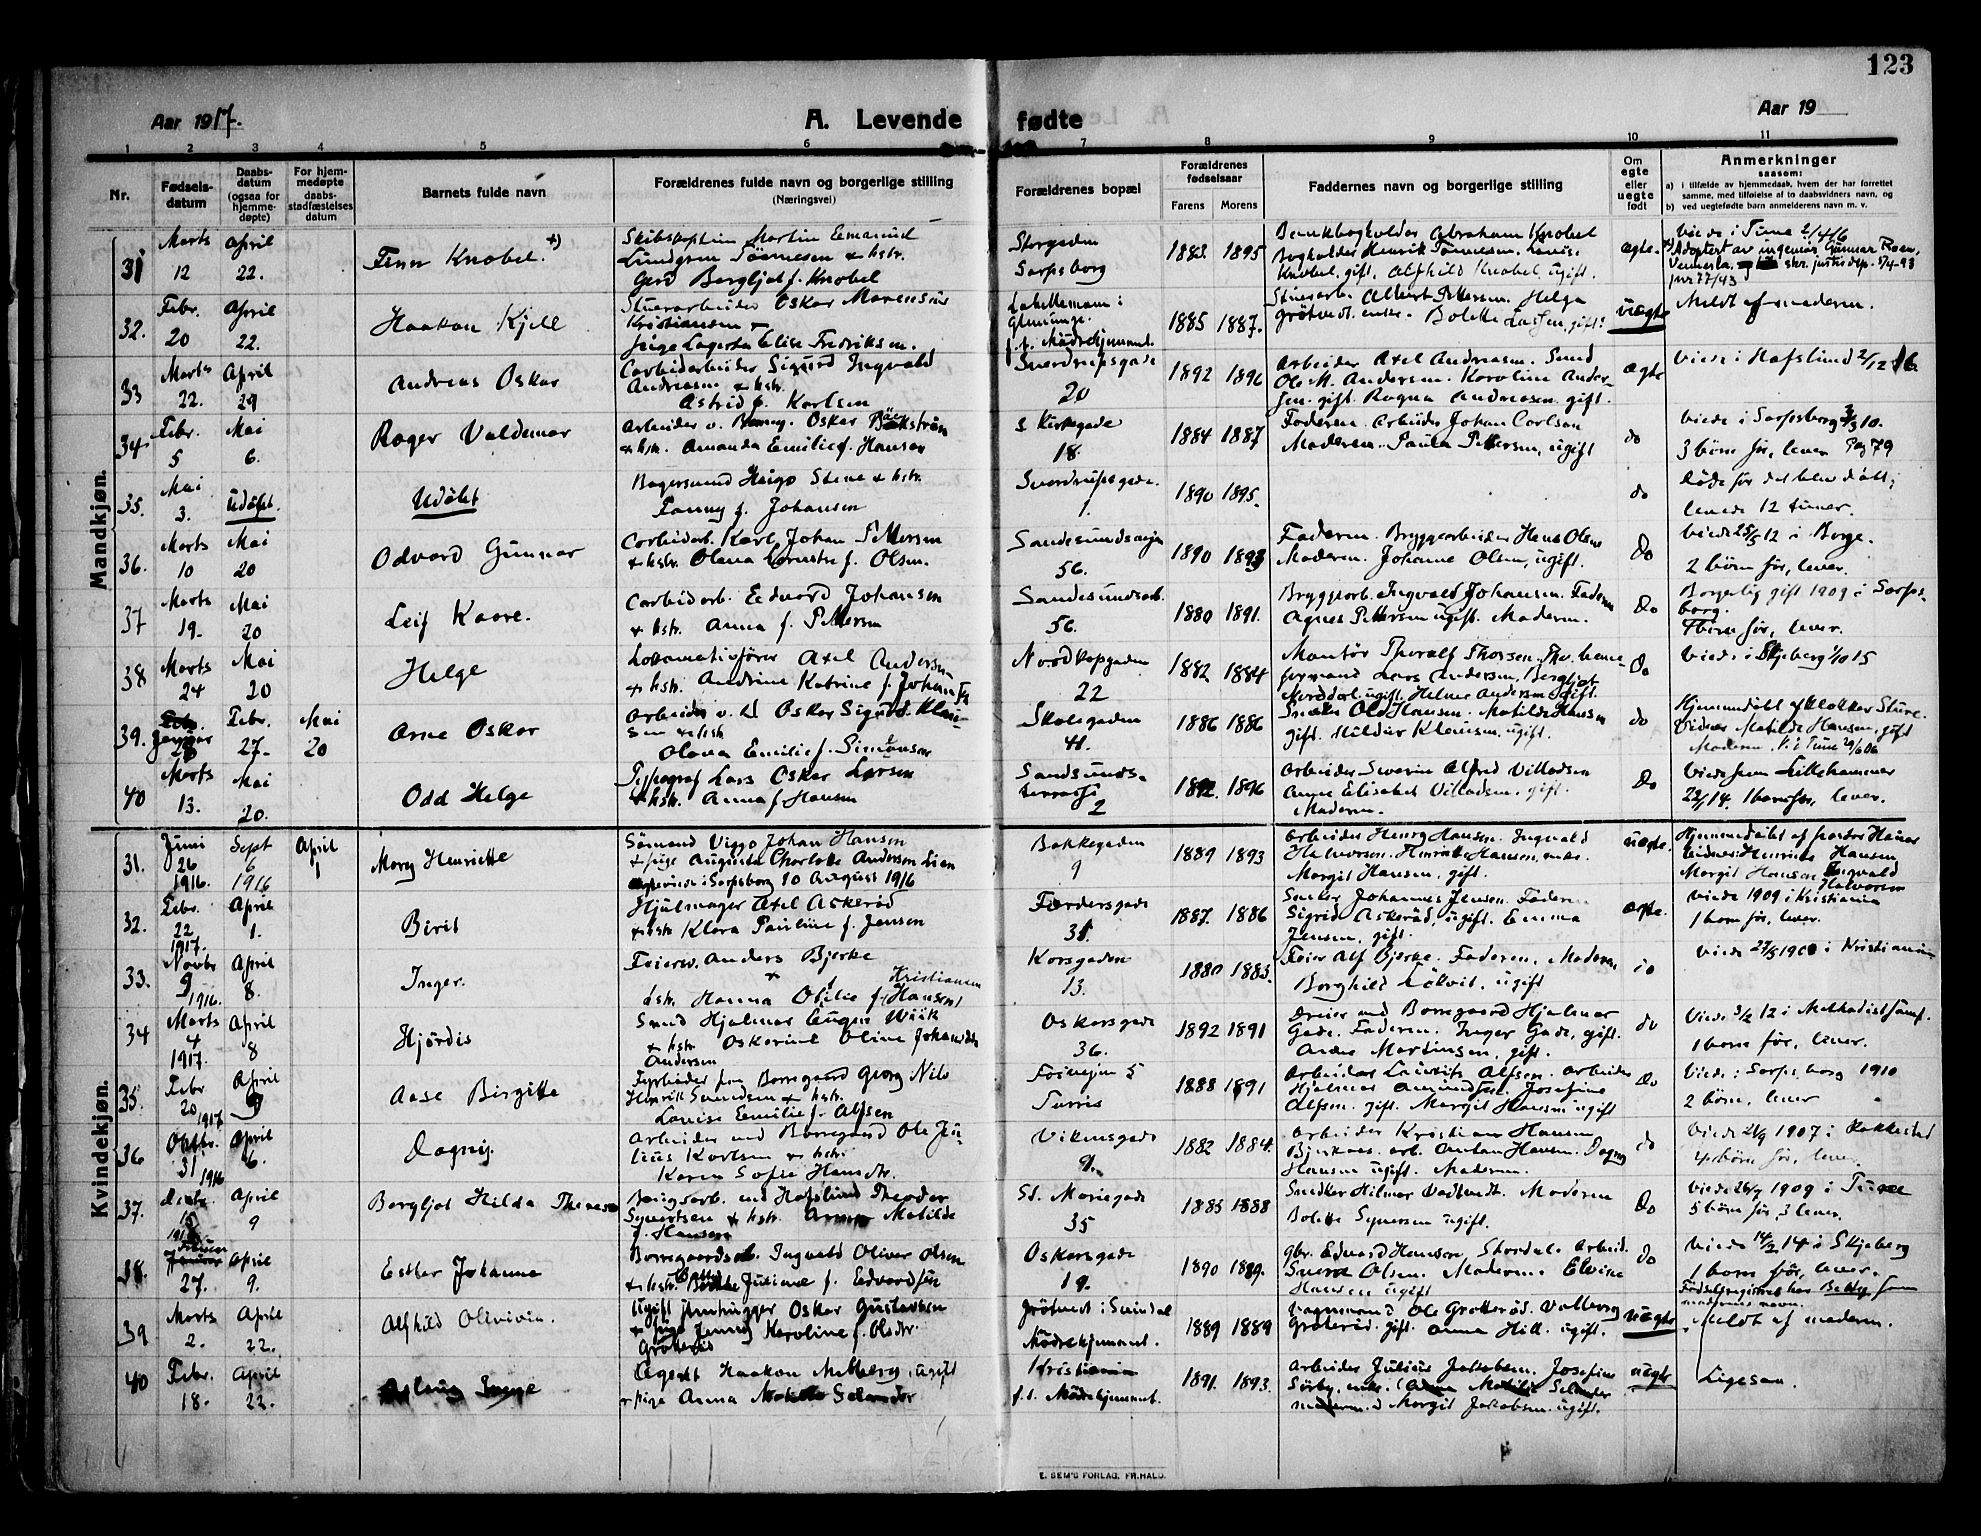 123
Aar 1917.
A. Levende fødte
Aar 19
1 2 3 4 5 6 7 8 9 10 11
Nr.
Fødsels-
datum
Daabs-
datum
(ogsaa for
hjemme-
døpte)
For hjem-
medøpte
daabs-
stadfæstelses
datum
Barnets fulde navn
Forældrenes fulde navn og borgerlige stilling
(Næringsvei)
Forældrenes bopæl
Forældrenes
fødselsaar
Farens Morens
Faddernes navn og borgerlige stilling
Om
egte
eller
uegte
født
Anmerkninger
saasom:
a) i tilfælde av hjemmedaab, hvem der har forrettet
samme, med tilføielse af to daabsvidners navn, og
b) ved uegtefødte barn anmelderens navn m. v.
Mandkjøn.
31
Marts
12
April
22.
Finn Knobel. x)
Skibskaptein Martin Emanuel
Lundgren Tönnesen & hstr.
Gerd Bergljot f. Knobel
Storgaden
Sarpsborg
1883. 1895
Bankbogholder Abraham Knobel
Bogholder Henrik Tönnesen. Louise
Knobel, gift. Alfhild Knobel, ugift.
ægte.
Viede i Tune
x) Adoptert av ingeniør Gunnar Roen,
Vennesla
32.
Febr.
20
April
22.
Haakon Kjell
Stuerarbeider Oskar Marensius
Kristiansen &
pige Lagerta Elise Fredriksen.
f. t. Mödrehjemmet.
1885 1887.
Stuerarb. Albert Pettersen. Helga
Grötvedt. enke. Bolette Larsen, gift.
uægte
Meldt af moderen.
33
Marts
22.
April
29
Andreas Oskar
Carbidarbeider Sigurd Ingvald
Andreasen & hstr.
Astrid f. Karlsen
Sverdrupsgade
20
1892 1896
Arbeider Axel Andreasen. Smed
Ole M. Andersen. Karoline Ander-
sen. gift. Ragna Andreasen. gift.
ægte
Viede i Hafslund 2/12 16
34.
Febr.
5
Mai
6.
Roger Valdemar
Arbeider v. Borreg. Oskar Bäckström
& hstr. Amanda Emilie f. Hansen
S. Kirkegade
18.
1884 1887
Faderen. Arbeider Johan Carlson
Moderen. Paula Pettersen, ugift
do
Viede i Sarpsborg 3/3 10.
3 börn för, lever Pag 79
35.
Mai
3.
Udöbt.
Udöbt
Bagersvend Heigo Stene & hstr.
Fanny f. Johansen
Sverdrupsgade.
1.
1890 1895.
do
Döde för det blev döbt;
levede 12 timer.
36.
Marts
10
Mai
20
Odvard Gunnar
Carbidarb. Karl Johan Pettersen
& hstr. Olena Lovntse f. Olsen.
Sandesundsveien
56.
1890 1893
Faderen. Bryggearbeider Hans Olsen
Moderen. Johanne Olsen, ugift.
Do
Viede 25/5 12 i Borge.
2 börn för, lever.
37
Marts
19.
Mai
20
Leif Kaare.
Carbidarb. Edvard Johansen
& hstr. Anna f. Pettersen
Sandesundsveien
56.
1880 1891.
Bryggearb. Ingvald Johansen. Faderen
Agnes Pettersen ugift. Moderen.
Do
Borgerlig gift 1909 i Sarps-
borg.
4 börn för, lever.
38
Marts
24
Mai
20
Helge
Lokomotivförer Axel Andersen
& hstr. Andrine Katrine f. Johansen
Nordkapgaden
22
1882 1884
Montör Thoralf Thorsen.
formand Lars Andersen. Bergljot
Norddal. ugift. Helene Andersen gift.
Do
Viede i Skjeberg 1/10 15
39.
Januar
Febr.
27-
Mai
20
Arne Oskar
Arbeider Oskar Sigurd Klau-
sen & hstr
Olena Emilie f. Simonsen
Skolegaden
41.
1886 1886
Snekker Ole Hansen. Matilde Hansen
gift. Hildur Klausen, ugift.
do
Hjemmedöbt af klokker Sture.
Vidner Matilde Hansen, gift
Moderen. V. i Tune 29/6 06
40
Marts
13.
Mai
20.
Odd Helge
Typograf Lars Oskar Larsen
& hstr. Anna f. Hansen
Sandsunds-
terrasse
2
1892. 1896
Arbeider Severin Alfred Villadsen
Anne Elisabet Villadsen. gift.
Moderen.
Do
Viede Lillehammer
22/1 14. 1 barn för, lever.
Kvindekjøn.
31.
Juni
26
1916.
Sept
6
1916
April
1
Mary Henriette
Sömand Viggo Johan Hansen
& pige Augusta Charlotte Andersen Lien
viede i Sarpsborg 10 August 1916
Bakkegaden
9
1889 1893
Arbeider Henry Hansen. Ingvald
Halvorsen. Henriette Hansen, enke.
Margit Hansen, gift.
uægte.
Hjemmedöbt af pastor
Vidner: Henriette Hansen
Margit Hansen Ingvald
Halvorsen
32.
Febr.
22
1917.
April
1.
Birit
Hjulmager Axel Askeröd
& hstr Klara Pauline f. Jensen
Færdersgade
31.
1887. 1886
Snekker Johannes Jensen. Faderen
Sigrid Askeröd, ugift. Emma
Jensen, gift.
ægte.
Viede 1909 i Kristiania
1 barn för, lever.
33.
Novbr
9
1916.
April
8.
Inger.
Feiersv. Anders Bjerke
&
hstr. Hanna Otilie f. Kristiansen (Hansen)
Korsgaden
13.
1880 1883.
Feier Alf Bjerke. Faderen. Moderen
Borghild Lökvit, ugift
do
Viede i Kristiania
34
Marts
4
1917.
April
8
Hjördis
Smed Hjalmar Eugen Wiik
& hstr. Oskarine Oline Johansen
Andersen
Oskarsgade
36.
1892 1891
Dreier ved Borregaard Hjalmar
Gade. Faderen. Inger Gade, gift.
Martinsen, gift.
do
Viede 3/2 12 i Methodistsamf.
1 barn för, lever.
35.
Febr
20
1917
April
9
Aase Birgitte
Fyrböder paa Borregaard Georg Nils
Henrik Svendsen & hstr.
Louise Emilie f. Alfsen
Turris
1888 1891
Arbeider Lauritz Alfsen. Arbeider
Hjalmar Amundsen. Josefine
Alfsen. gift. Margit Hansen ugift
Do
Viede i Sarpsborg 1910
2 börn, lever
36
Oktbr.
31
1916
April
6.
Dagny.
Arbeider ved Borregaard Ole Ju-
lius Karlsen & hstr.
Karen Sofie Hansdtr.
Vikensgade
9.
1882 1884.
Arbeider Kristian Hansen
arb. Anton Hansen. Dagny
Hansen ugift. Moderen.
do
Viede 1907 i Rakkestad
4 börn för, lever.
37.
April
9
Bergljot Hilda Therese
Brugsarb. ved Hafslund Theodor
Syvertsen & hstr. Anna Matilde
f. Hansen
St. Mariegade
35
1885 1888
Snedker Hilmar Vadtvedt. Moderen
Bolette Syversen ugift.
Do
Viede 26/7 1909 i Tune
5 börn för, 3 lever.
38.
27.
April
9.
Ester Johanne
Borregaardsarb. Ingvald Oliver Olsen
& hstr. Juline f. Edvardsen
Oskarsgade
19.
1890 1889.
gbr. Edvard Hansen, Stordal. Arbeid.
Sverre Olsen. Moderen. Elvine
Hansen ugift
do
Viede 14/2 14 i Skjeberg
1 barn för, lever.
Födselsregistret har Betty som
moderens navn.
39
Marts
2.
April
22.
Alfhild Olivivia.
Ugift Oskar Gustavsen
& pige Jenny Karoline f. Olsdtr
Grötvedt
Mödrehjemmet.
1889 1889
Ole Valborg
gift. Anna Hill. ugift.
uægte
Meldt af moderen.
40
Febr.
18.
April
22.
Aslaug Inge
Agent Haakon Melberg, ugift
& pige Anna Matilde Selander
Kristiania
f. t. Mödrehjemmet.
1891. 1893.
Arbeider Julius Jakobsen. Josefine
Sörby. enke. (Anna Matilde Selander
moderen.) Margit Jakobsen. ugift.
uægte
Ligesaa.
E. SEM'S FORLAG, FR.HALD.